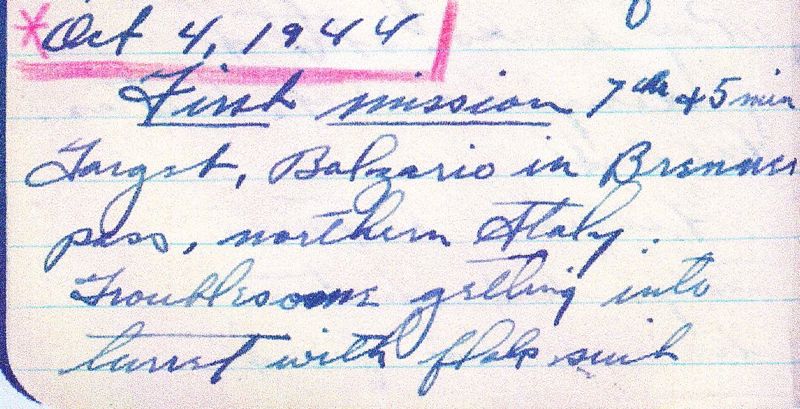 *Oct 4, 1944
First mission 7 hrs 45 min
Target, Balzario in Brenner
pass, northern Italy.
Troublesome getting into
turret with flak suit